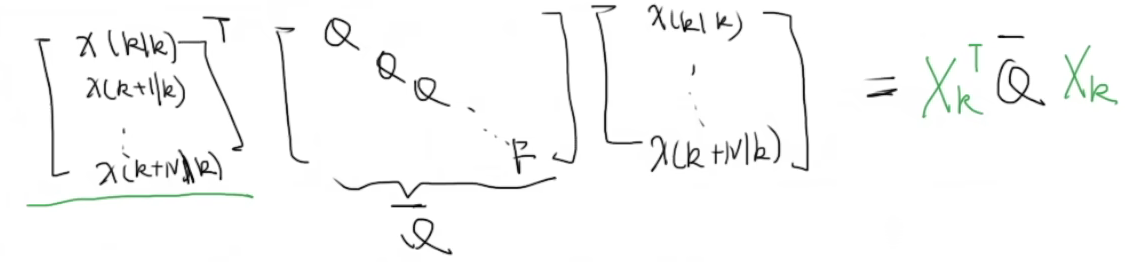 [x(k|k) x(k+1|k) ⋮ x(k+N|k)]ᵀ [Q Q Q ⋱ F] [x(k|k) ⋮ x(k+N|k)] = X_kᵀ Q̄ X_k
Q̄